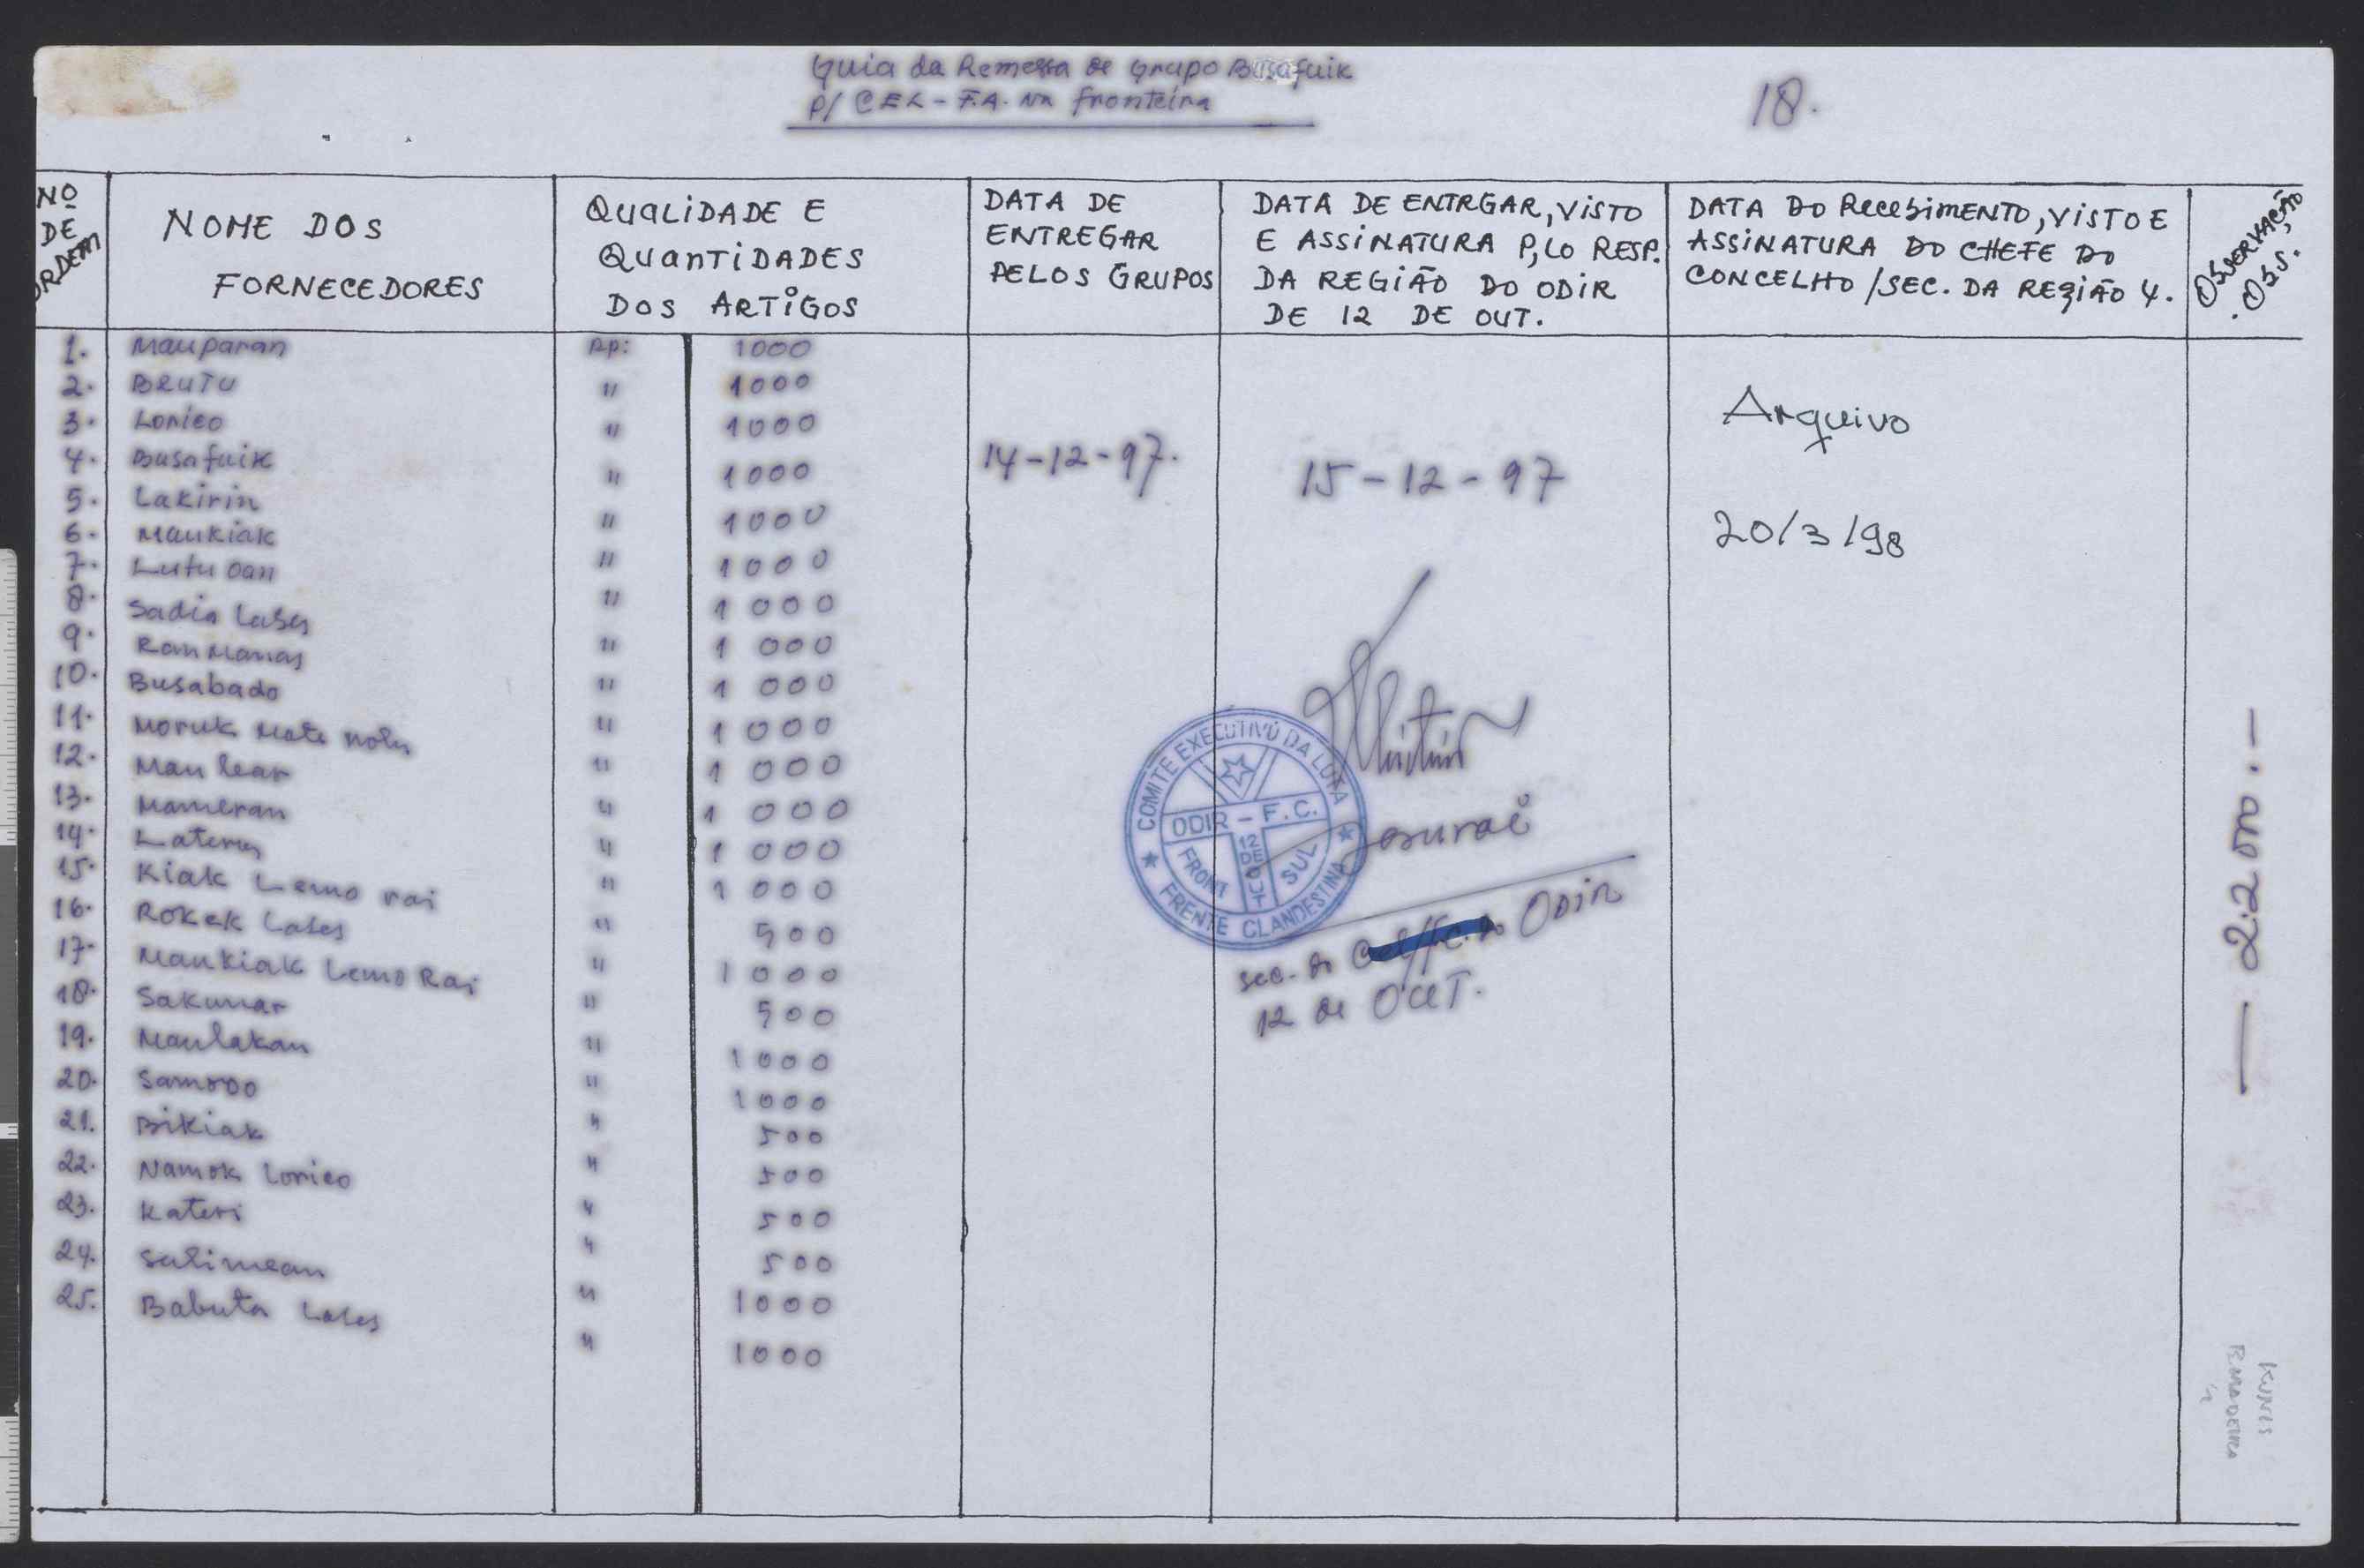 Guia da Remessa de Grupo Busafuik
P/ CEL - F.A. na fronteira
18.
Nº DE ORDEM
NOME DOS
FORNECEDORES
QUALIDADE E
QUANTIDADES
DOS ARTIGOS
DATA DE
ENTREGAR
PELOS GRUPOS
DATA DE ENTRGAR, VISTO
E ASSINATURA P,LO RESP.
DA REGIÃO DO ODIR
DE 12 DE OUT.
DATA DO RecebiMENTO, VISTO E
ASSINATURA DO CHEFE DO
CONCELHO / SEC. DA REGIÃO 4.
OBSERVAÇÃO
. OBS.
1. Mauparan Rp: 1000
2. BRUTU " 1000
3. Lorico " 1000
4. Busafuik " 1000
5. Lakirin " 1000
6. Maukiak " 1000
7. Lutu oan " 1000
8. Sadia Lases " 1000
9. Ran Manas " 1000
10. Busabado " 1000
11. Moruk Mate " 1000
12. Man lear " 1000
13. Mameran " 1000
14. Laterus " 1000
15. Kiak Lemo rai " 500
16. Rokek Lases " 1000
17. Maukiak Lemo Rai " 500
18. Sakunar " 1000
19. Maulakan " 1000
20. Samoro " 500
21. Bikiak " 500
22. Namok Lorico " 500
23. Kateri " 500
24. Salimean " 1000
25. Babuta Lases " 1000
14-12-97.
15-12-97
Arquivo
20/3/98
COMITE EXECUTIVO DA LUTA
ODIR - F.C.
FRONT SUL
12 DE OUT
FRENTE CLANDESTINA
Sec. do ODIR
12 de OUT.